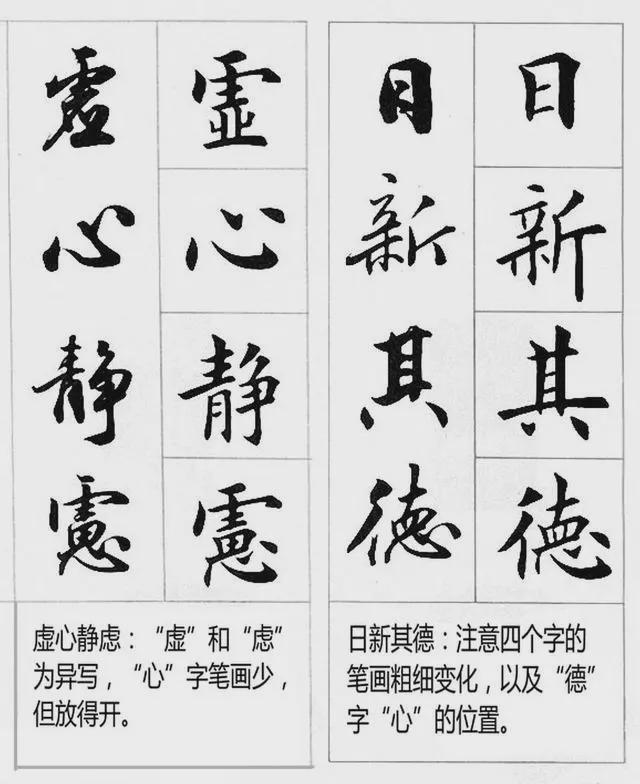 日新其德
日新其德
日新其德：注意四个字的
笔画粗细变化，以及“德”
字“心”的位置。
虚心静慮
虚心静慮
虚心静虑：“虚”和“虑”
为异写，“心”字笔画少，
但放得开。